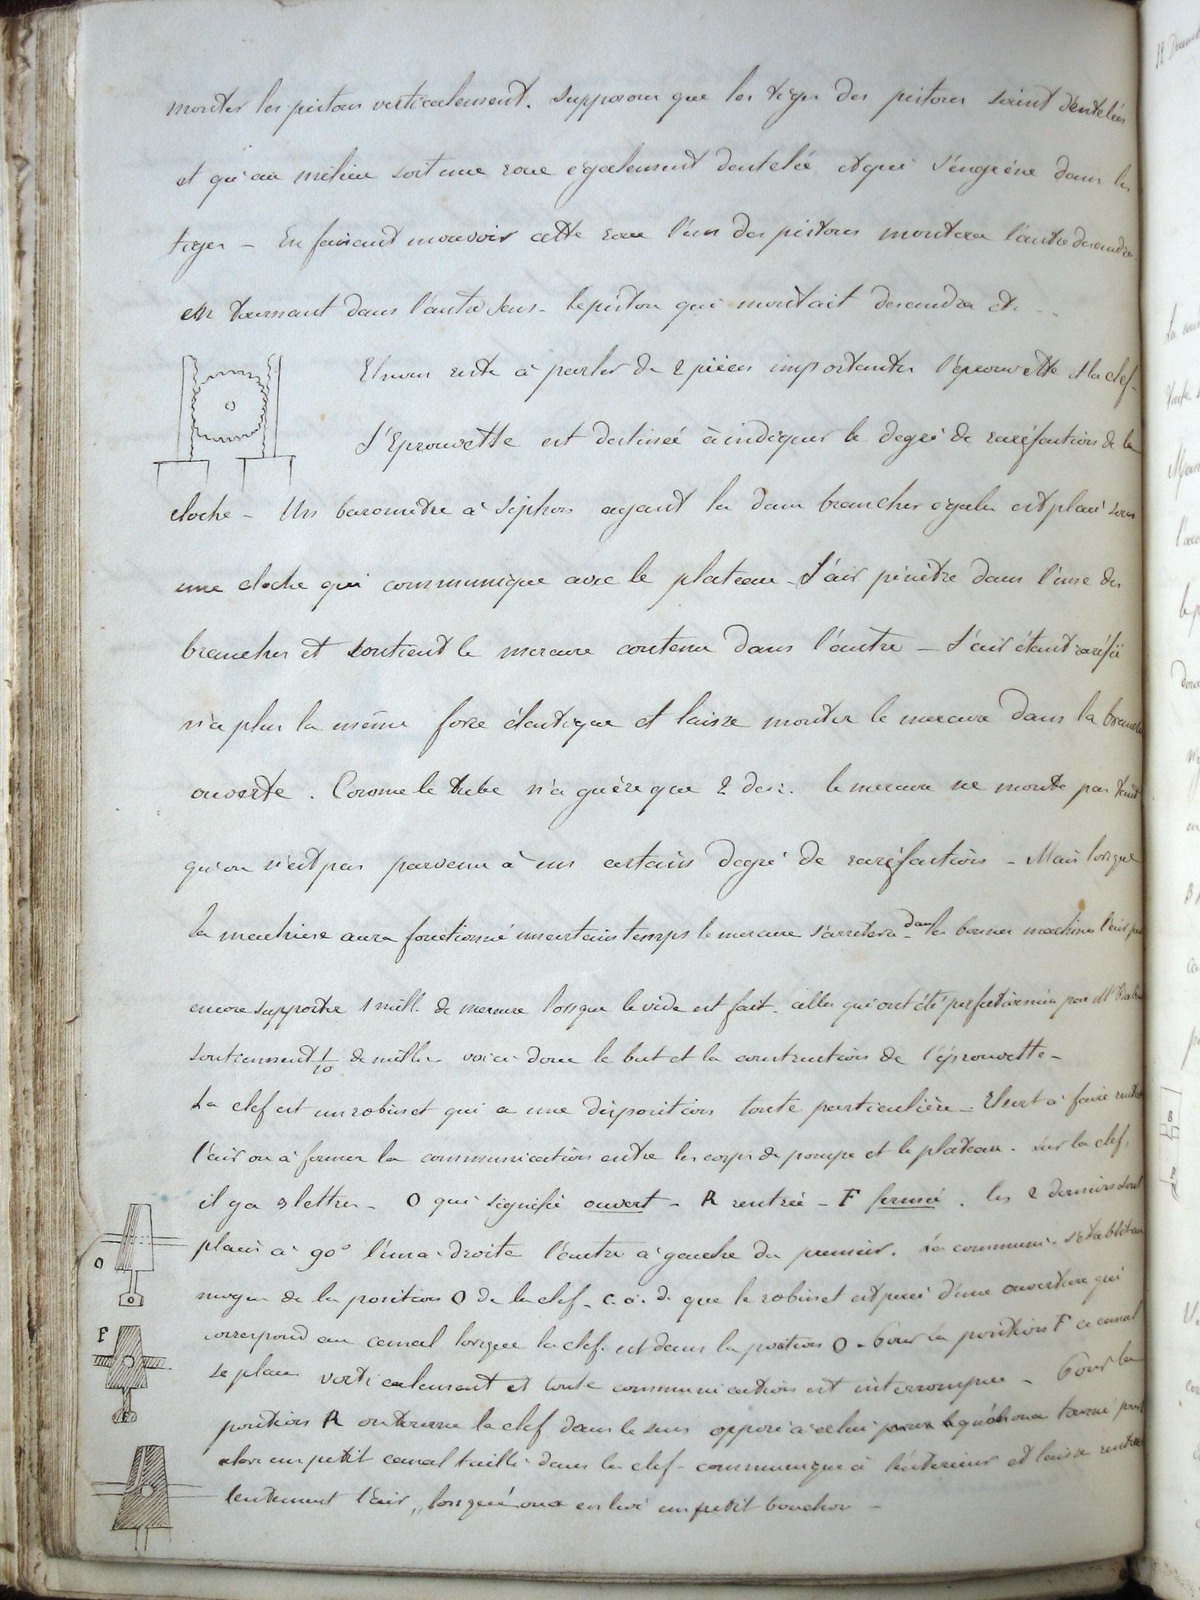 monter les pistons verticalement. Supposons que les tiges des pistons soient dentelées
et qu'au milieu soit une roue également dentelée et qui s'engrène dans les
tiges - En faisant mouvoir cette roue l'un des pistons montera l'autre descendra
en tournant dans l'autre sens - le piston qui montait descendra et. - -
Il nous reste à parler de 2 pièces importantes l'éprouvette et la clef -
L'Eprouvette est destinée à indiquer le degré de raréfaction de la
cloche - Un baromètre à siphon ayant les deux branches égales est placé sous
une cloche qui communique avec le plateau - L'air pénètre dans l'une des
branches et soutient le mercure contenu dans l'autre - L'air étant raréfié
n'a plus la même force élastique et laisse monter le mercure dans la branche
ouverte . Comme le tube n'a guère que 2 dec. le mercure ne monte pas tant
qu'on n'est pas parvenu à un certain degré de raréfaction - Mais lorsque
la machine aura fonctionné un certain temps le mercure s'arrêtera - dans les bonnes machines l'air peut
encore supporter 1 mill. de mercure lorsque le vide est fait. celles qui ont été perfectionnées par Mr
soutiennent 1/10 de mill. - voici donc le but et la construction de l'éprouvette -
La clef est un robinet qui a une disposition toute particulière - Il sert à faire rentrer
l'air ou à fermer la communication entre les corps de pompe et le plateau. Sur la clef,
il y a 3 lettres - O qui signifie ouvert - R rentrée - F fermé . les 2 derniers sont
placés à 90° l'un à droite l'autre à gauche du premier. La communi. s'établit au
moyen de la position O de la clef - c. à. d. que le robinet est percé d'une ouverture qui
correspond au canal lorsque la clef est dans la position O - Pour la position F ce canal
se place verticalement et toute communication est interrompue - Pour la
position R on tourne la clef dans le sens opposé à celui qu'on a tourné pour
alors un petit canal taillé dans la clef communique à l'extérieur et laisse rentrer
lentement l'air, lorsqu'on a enlevé un petit bouchon -
O
F